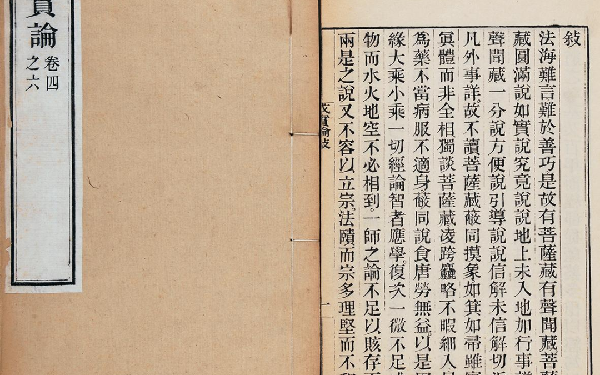 敍
法海難言難於善巧是故有菩薩藏有聲聞藏菩
藏圓滿說如實說究竟說說地上未入地加行事
聲聞藏一分說方便說引導說說信解未信解切
凡外事詳故不讀菩薩藏蔽同摸象如箕如帚雖
冥體而非全相獨談菩薩藏凌跨麤略不暇細入
為藥不當病服不適身蔽同說食唐勞無益以是
緣大乘小乘一切經論智者應學復次一微不足
物而水火地空不必相到一師之論不足以賅存
兩是之說又不容以立宗法賾而宗多理堅而不
成實論敍
一
實論
卷四
之六